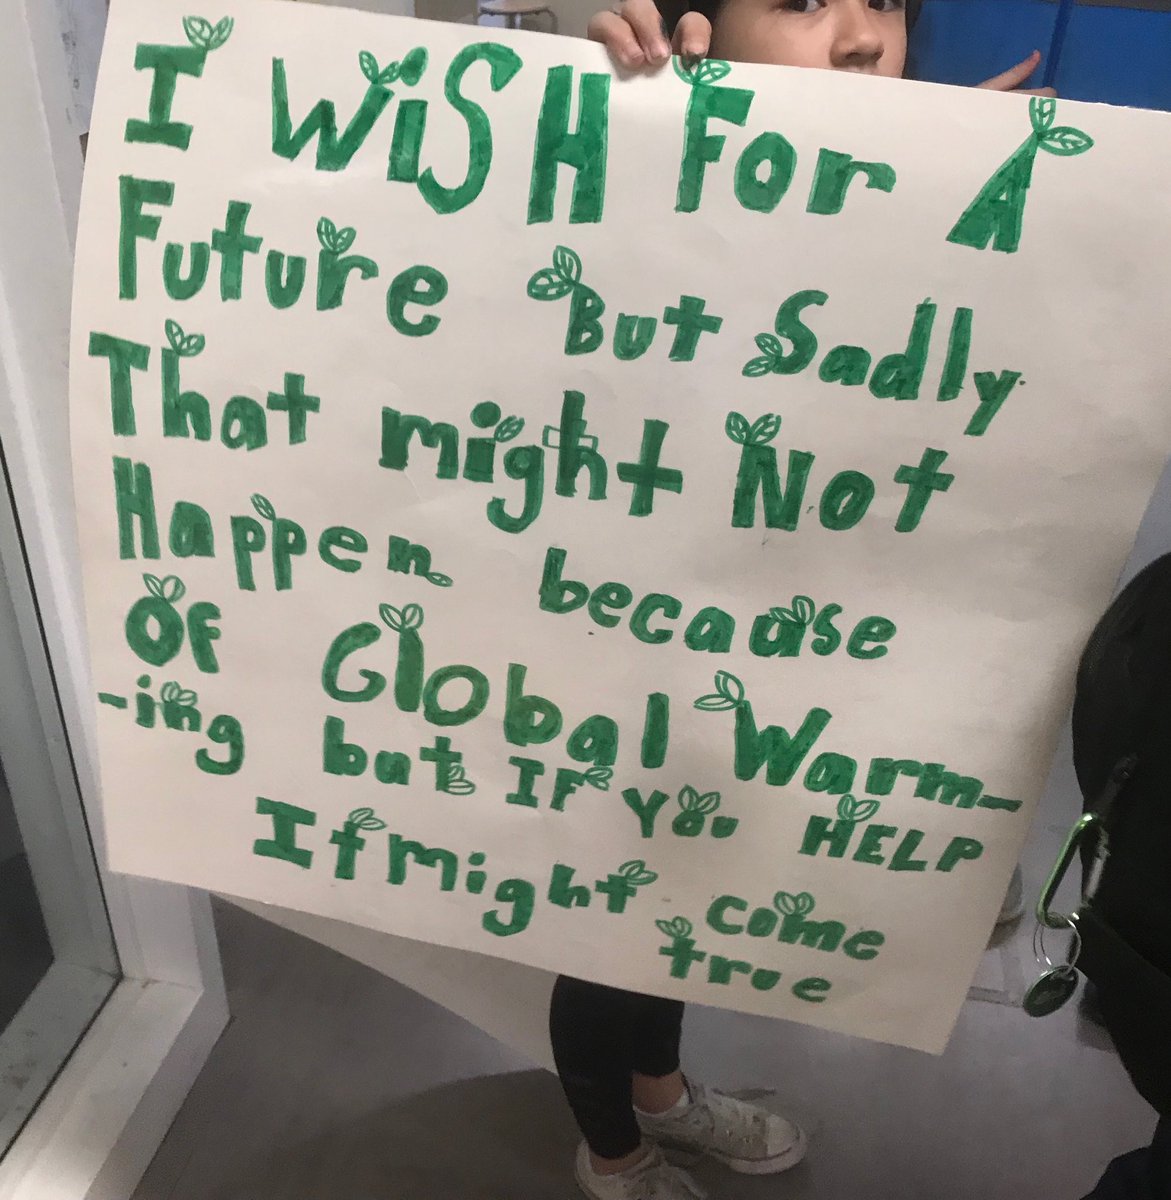 I WiSH For A
Future But Sadly
That might Not
Happen because
OF Global Warm-
-ing but IF You HELP
It Might come
true